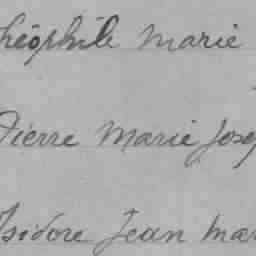 héophile Marie
Pierre Marie Josep
Isidore Jean Mar